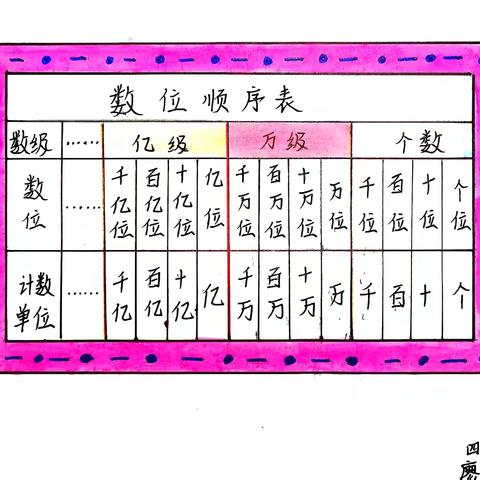 数位顺序表
数级 …… 亿级 万级 个数
数位 …… 千亿位 百亿位 十亿位 亿位 千万位 百万位 十万位 万位 千位 百位 十位 个位
计数单位 …… 千亿 百亿 十亿 亿 千万 百万 十万 万 千 百 十 个
四
廖